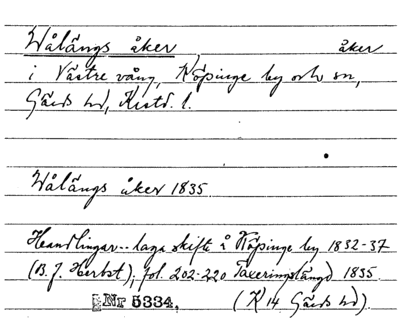 Wålängs åker, åker
i Västre vång, Köpinge by och sn,
Gärds hd, Kristd. l.
Wålängs åker 1835.
Handlingar -- laga skifte å Köpinge by 1832-37
(B. J. Herbst), fol. 202-220 Taxeringslängd 1835.
Nr 5334, (K 14 Gärds hd).